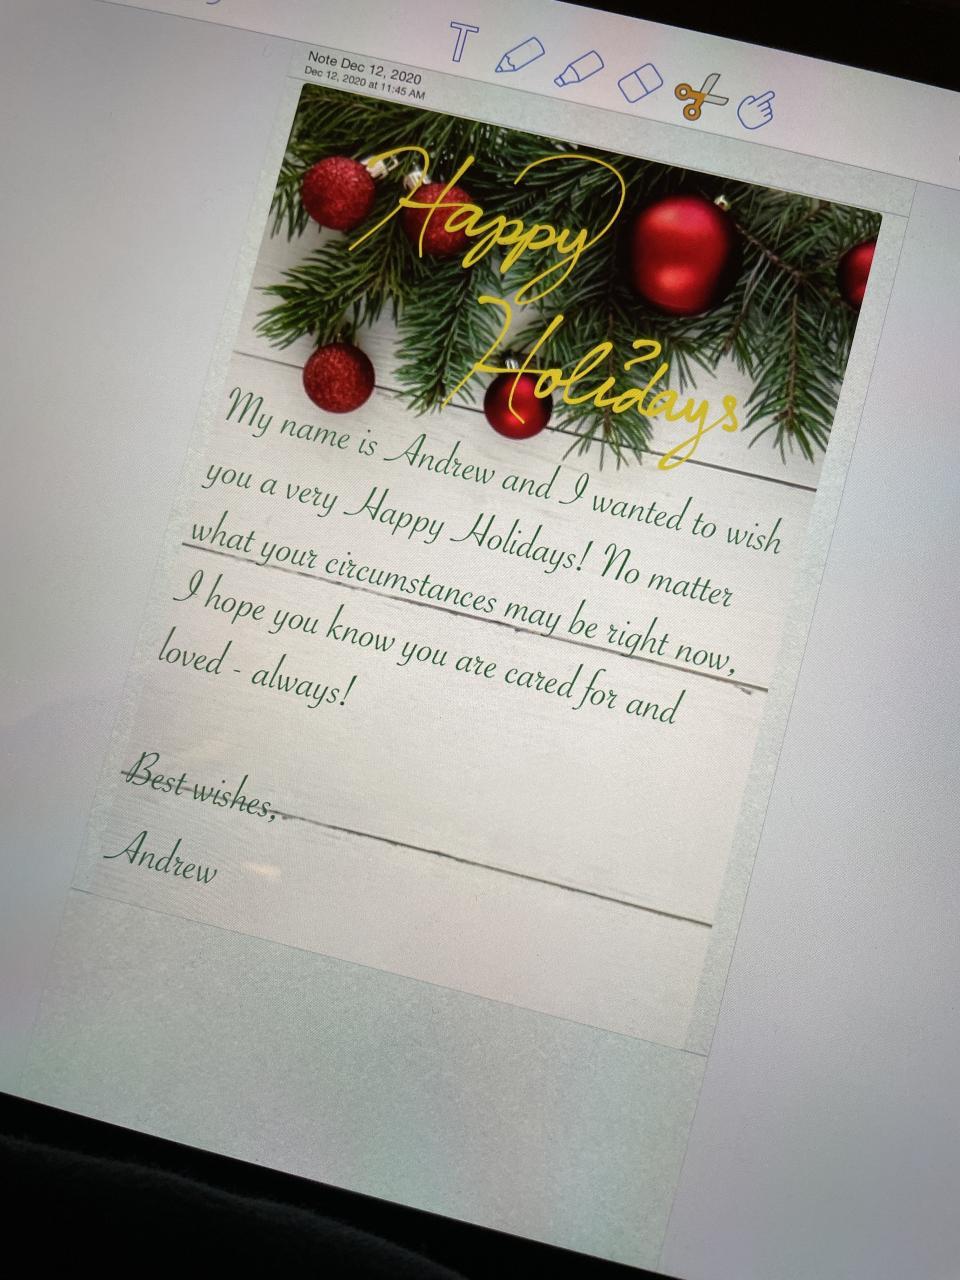 T
Note Dec 12, 2020
Dec 12, 2020 at 11:45 AM
Happy
Holidays
My name is Andrew and I wanted to wish
you a very Happy Holidays! No matter
what your circumstances may be right now,
I hope you know you are cared for and
loved - always!
Best wishes,
Andrew